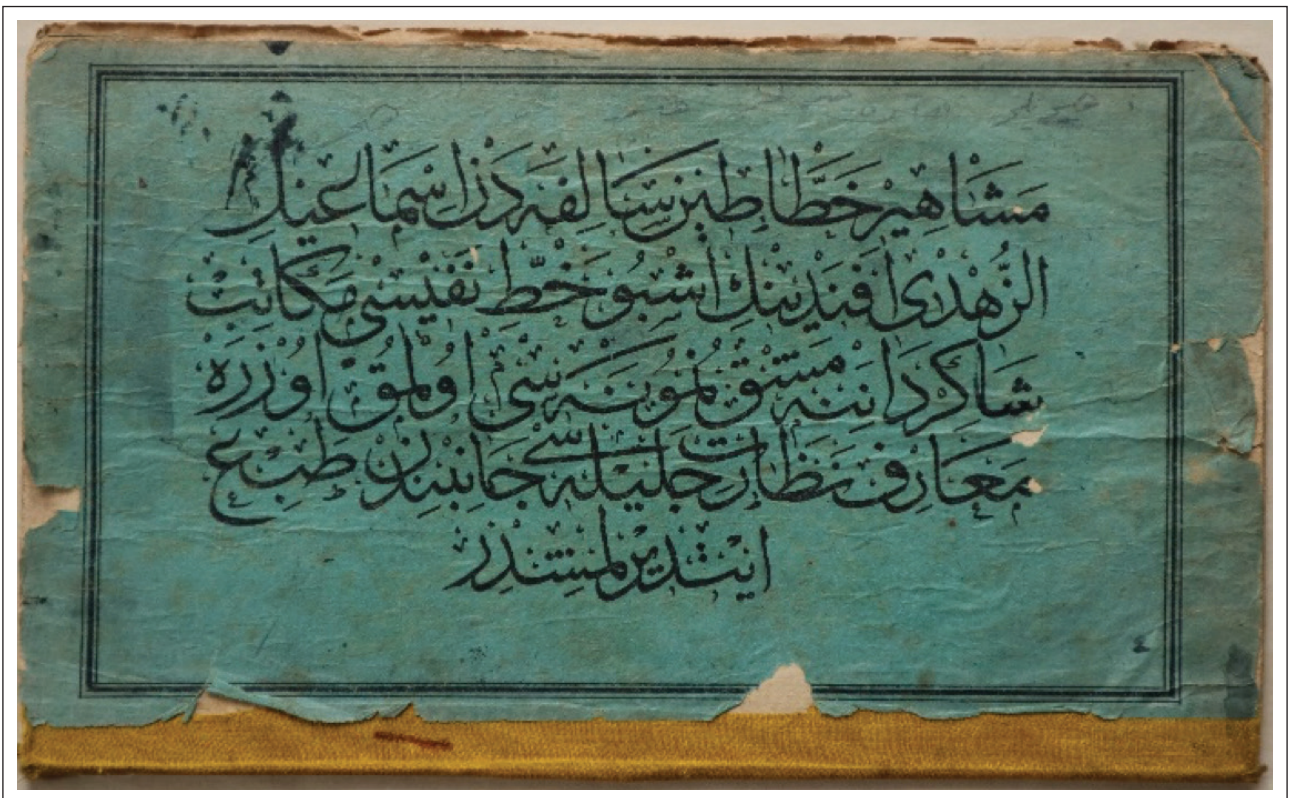 مَشَاهِيْرِ خَطَّاطِيْنِ سَالِفَه دَنْ اِسْمَاعِيْلِ
الزُّهْدِى اَفَنْدِيْنِكْ اِشْبُو خَطِّ نَفِيْسِى مَكَاتِبْ
شَاكِرْدَانِنَه مَشْقْ نُمُونَه سِى اُولْمَقْ اُوزَرَه
مَعَارِفْ نَظَارَتِ جَلِيْلَه سِى جَانِبِنْدَنْ طَبْعْ
اِيتْدِيرِلْمِشْدِرْ